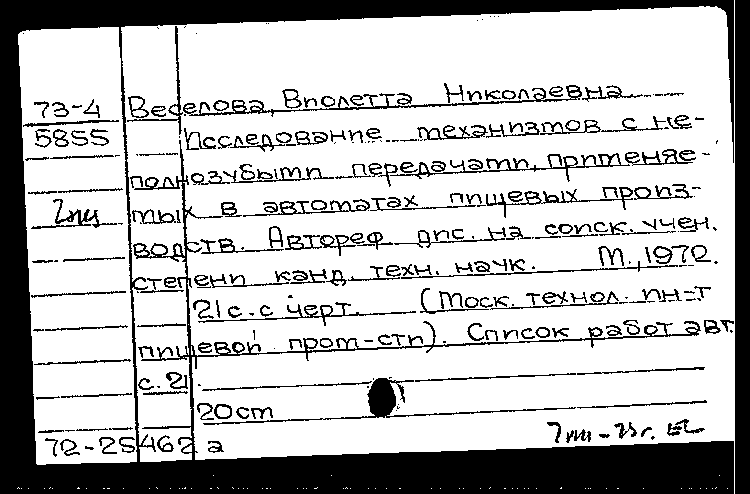 73-4 Веселова, Виолетта Николаевна
5855 Исследование механизмов с не-
полнозубыми передачами, применяе-
мых в автоматах пищевых произ-
водств. Автореф. дис. на соиск. учен.
степени канд. техн. наук. М., 1970.
21 с. с черт. (Моск. технол. ин-т
пищевой пром-сти). Список работ авт.
с. 21.
20 см
72-25462 а